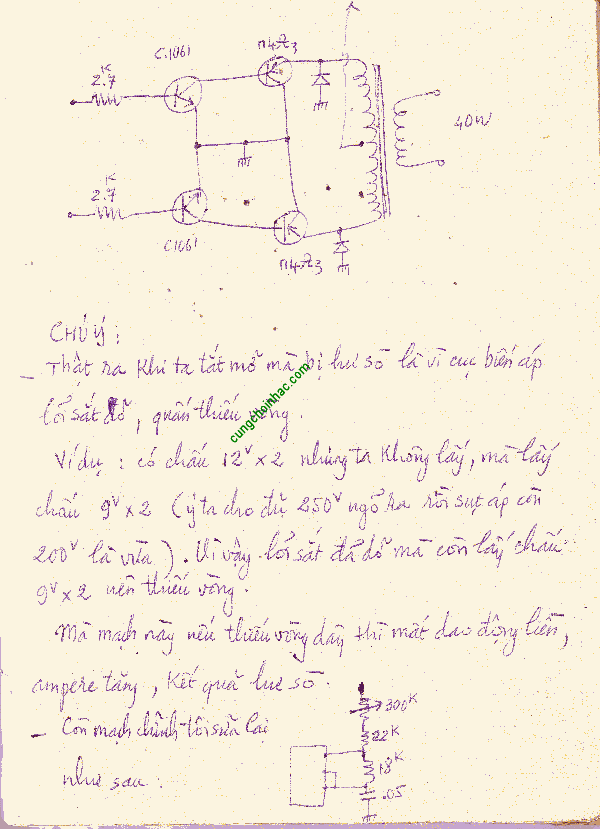 C.1061
2.7 K
40W
2.7 K
C1061
CHÚ Ý :
- Thật ra khi ta tắt mở mà bị hư sò là vì cục biến áp
lõi sắt dỡ, quấn thiếu vòng.
Ví dụ : có chấu 12V x 2 nhưng ta không lấy, mà lấy
chấu 9V x 2 (ý ta cho đủ 250V ngõ ra rồi sụt áp còn
200V là vừa). Vì vậy lõi sắt đã dỡ mà còn lấy chấu
9V x 2 nên thiếu vòng.
Mà mạch này nếu thiếu vòng dây thì mất dao động liền,
ampere tăng, kết quả hư sò.
- Còn mạch chính tôi sửa lại
như sau :
300K
22K
18K
.05
cungchoinhac.com